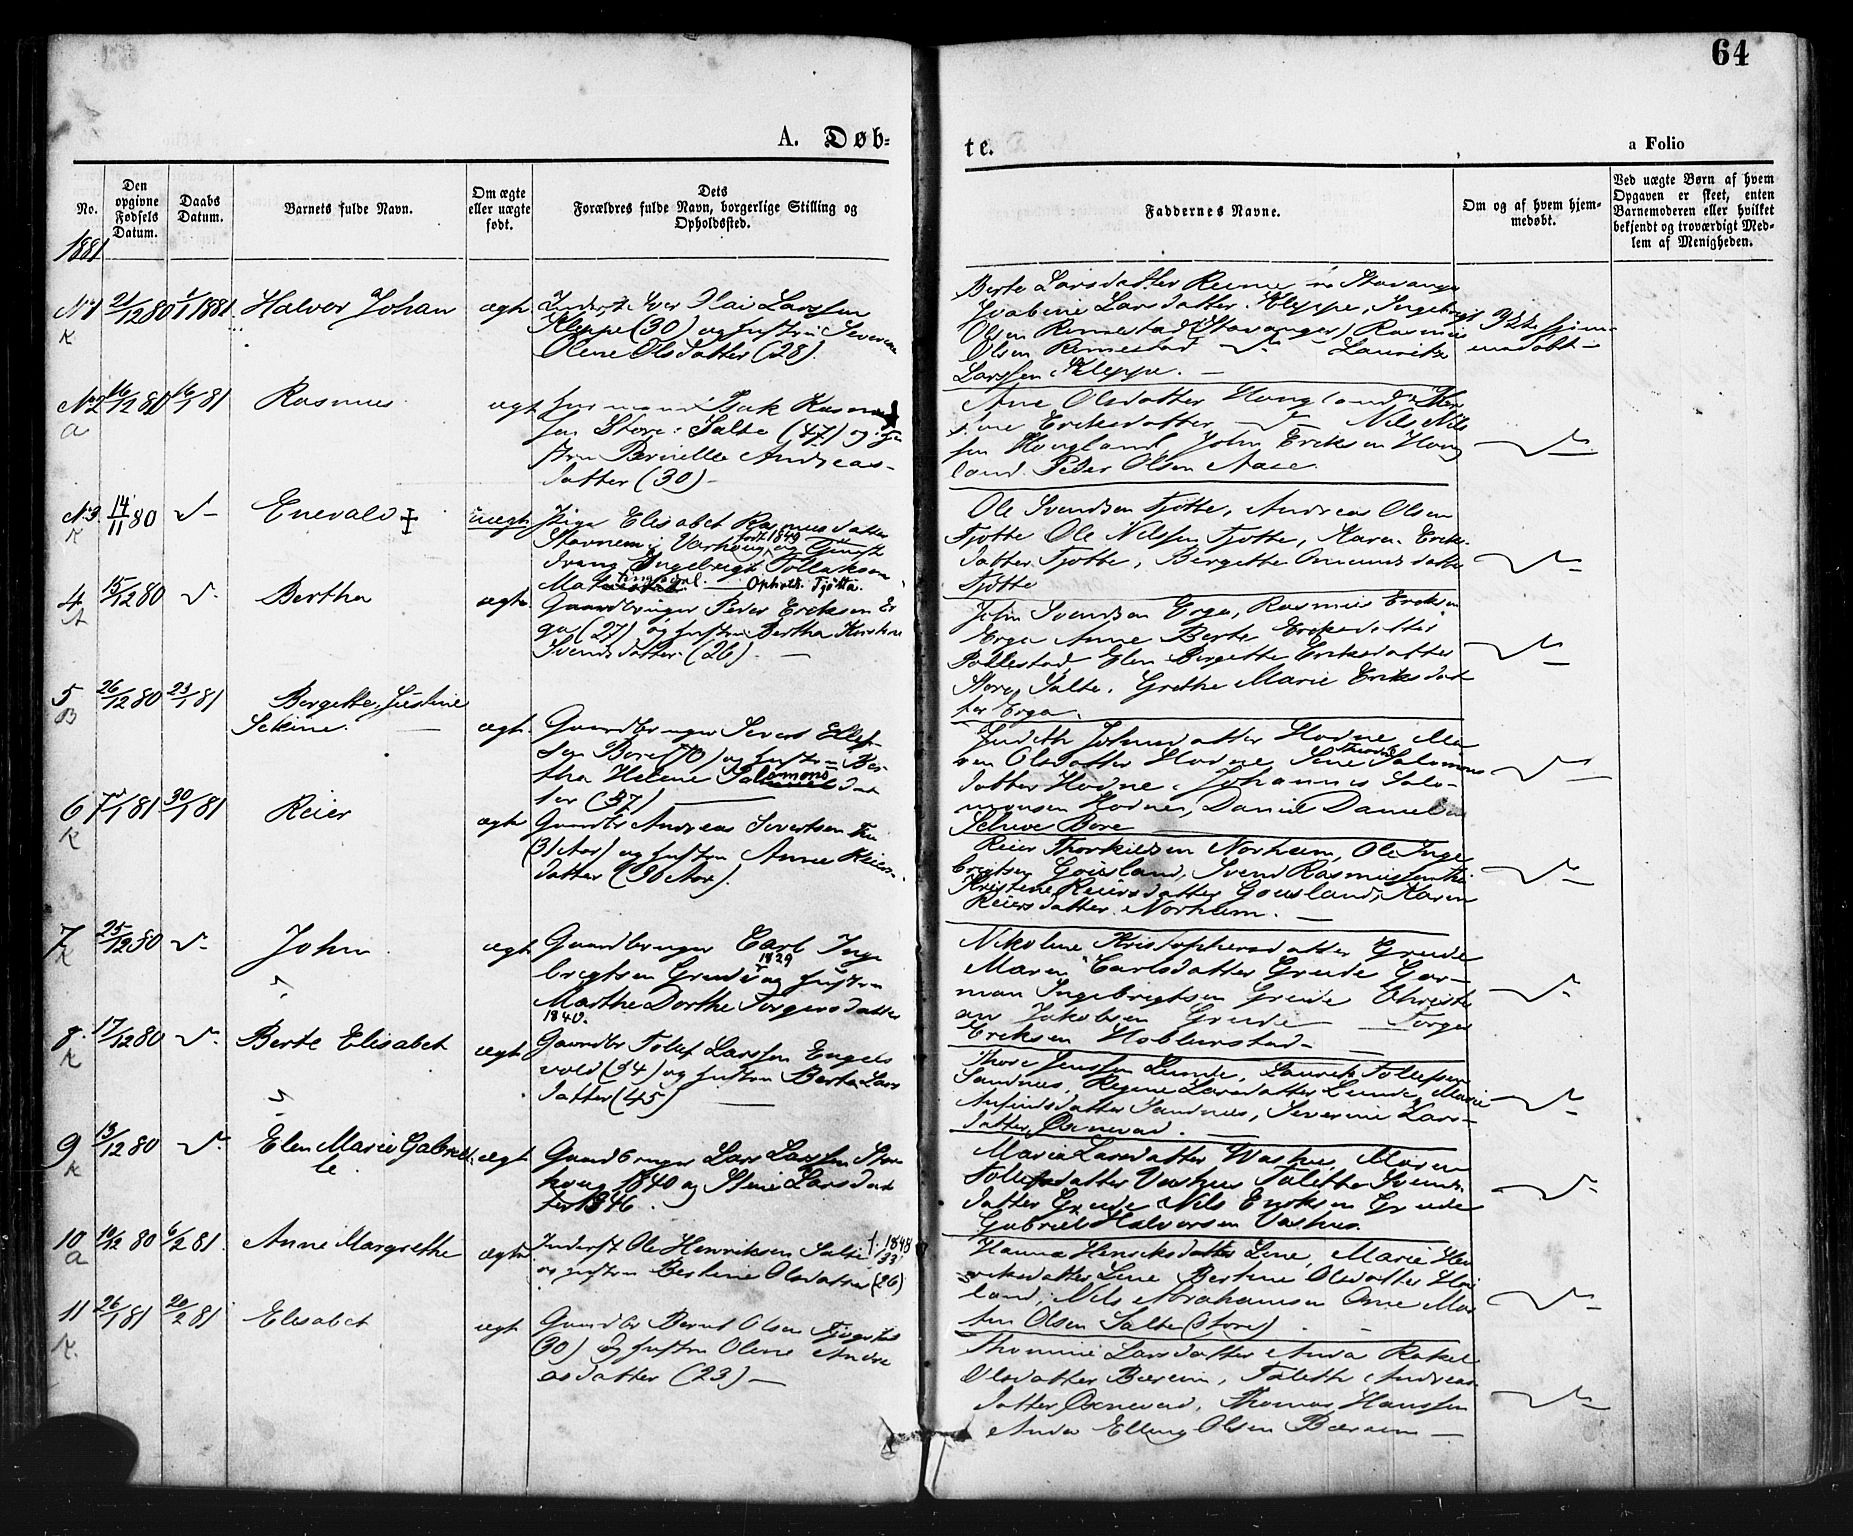 64
A. Døb-
te.
a Folio
No.
Den opgivne Fødsels Datum.
Daabs Datum.
Barnets fulde Navn.
Om ægte eller uægte født.
Dets Forældres fulde Navn, borgerlige Stilling og Opholdssted.
Faddernes Navne.
Om og af hvem hjemmedøbt.
Ved uægte Børn af hvem Opgaven er skeet, enten Barnemoderen eller hvilket bekjendt og troværdigt Medlem af Menigheden.
1881
No 1 21/12 80 1/1 1881 Halvor Johan ægte
K
Inderst Iver Olai Larssen
Kleppe (30) og hustru Severine
Olene Olsdatter (28).
Berte Larsdatter Reime Stavanger
Larsdatter Kleppe, Ingebrigt
Olsen Rimestad (Stavanger) Rasmus
Olsen Rimestad Lauritz
Larssen Kleppe. —
Ikke hjem-
medøbt —
No 2 16/12 80 16/1 81 Rasmus ægt
a
Isak Rasmus-
sen Store Salte (47) og Hu-
stru Bernille Andreas-
datter (30) —
Ane Olsdatter Hougland
Eriksdatter Nils Nil-
sen Hougland, John Ericksen Houg
land. Peder Olsen Aase.
No 3 14/11 80 Enevald uægte
K
Pige Elisabet Rasmusdatter
Stavnem i Varhoug født 1849 og Tjeneste
dreng Ingebrigt Tollaksen
Ophold. Tjøtta.
Ole Svendsen Tjøtte, Andreas Olsen
Tjøtte Ole Nilssen Tjøtte, Karen Erik-
datter Tjøtte, Bergette Omundsdatter
Tjøtte
4 15/12 80 Bertha ægte
A
Gaardbruger Peder Ericksen Er
ga (27) og hustru Bertha Kirstine
Svendsdatter (26) —
John Svendsen Erga, Rasmus Ericksen
Erga Anne Berte Ericksdatter
Pollestad Elen Bergette Eriksdatter
Store Salte. Grethe Marie Eriksdat
ter Erga.
5 26/12 80 23/1 81 Bergette Justine
B
Sekine. — ægte
Gaardbruger Sivert Ellef-
sen Bore (70) og hustru Ber-
tha Helene Salomonsdat
ter (37) —
Judith Johnsdatter Hodne, Ma
ren Olsdatter Hodne Sine Theodora Salomons
datter Hodne, Johannes Salo-
monsen Hodne, Daniel Danielsen
Scheie Bore
6 7/1 81 30/1 81 Reier ægte
K
Gaardbr Andreas Sivertsen Thu
(31 Aar) og hustru Anne Reiers-
datter (36 Aar).
Reier Thorkildsen Norheim, Ole Inge
brigtsen Gousland, Svend Rasmussen Thu
Kristene Reiersdatter Gousland, Karen
Reiersdatter Norheim. —
7 25/12 80 John ægte
K
Gaardbruger Carl Inge
brigtsen Grude 1829 og hustru
Marthe Dorthe Torgersdatter
1840.
Nikoline Kristophersdatter Grude
Maren Carlsdatter Grude Gor-
man Ingebrigtsen Grude Christi
an Jakobsen Grude — Torger
Eriksen Hoblurstad —
8. 17/12 80 Berte Elisabet ægte
K
Gaardbr Tollef Larssen Engels
vold (34) og hustru Berta Lars
datter (45) —
Thore Jenssen Lunde, Laurits Tollefsen
Sandnes, Regine Larsdatter Lunde, Marie
Anfindsdatter Sandnes, Severine Lars-
datter Oxnevad. —
9 13/12 80 Elen Marie Gabriel-
K
le ægte
Gaardbruger Lars Larssen Sto
houg 1840 og Stine Larsdat
ter 1846.
Maria Larsdatter Vashus, Maren
Tollefsdatter Vashus Talette Svends
datter Grude Nils Eriksen Grude
Gabriel Halvorsen Vashus
10 10/12 80 6/2 81. Anne Margrethe ægte
a
Inderst Ole Henriksen Salte f. 1848
33
og hustru Bertine Olsdatter (26)
Hanna Henriksdatter Line, Marie Hen
riksdatter Line Bertine Olsdatter Høi
land, Nils Abrahamsen Orre Mar
tin Olsen Salte (Store).
11 26/1 81 20/2 81 Elisabet ægt
K.
Gaardbr Bernt Olsen Tjøgstad
(30) og hustru Oline Andre
asdatter (23) —
Thomine Larsdatter Anda Rakel
Olsdatter Bærein, Talette Andreas
datter Oxnevad, Thomas Hanssen
Anda Elling Olsen Bærein —